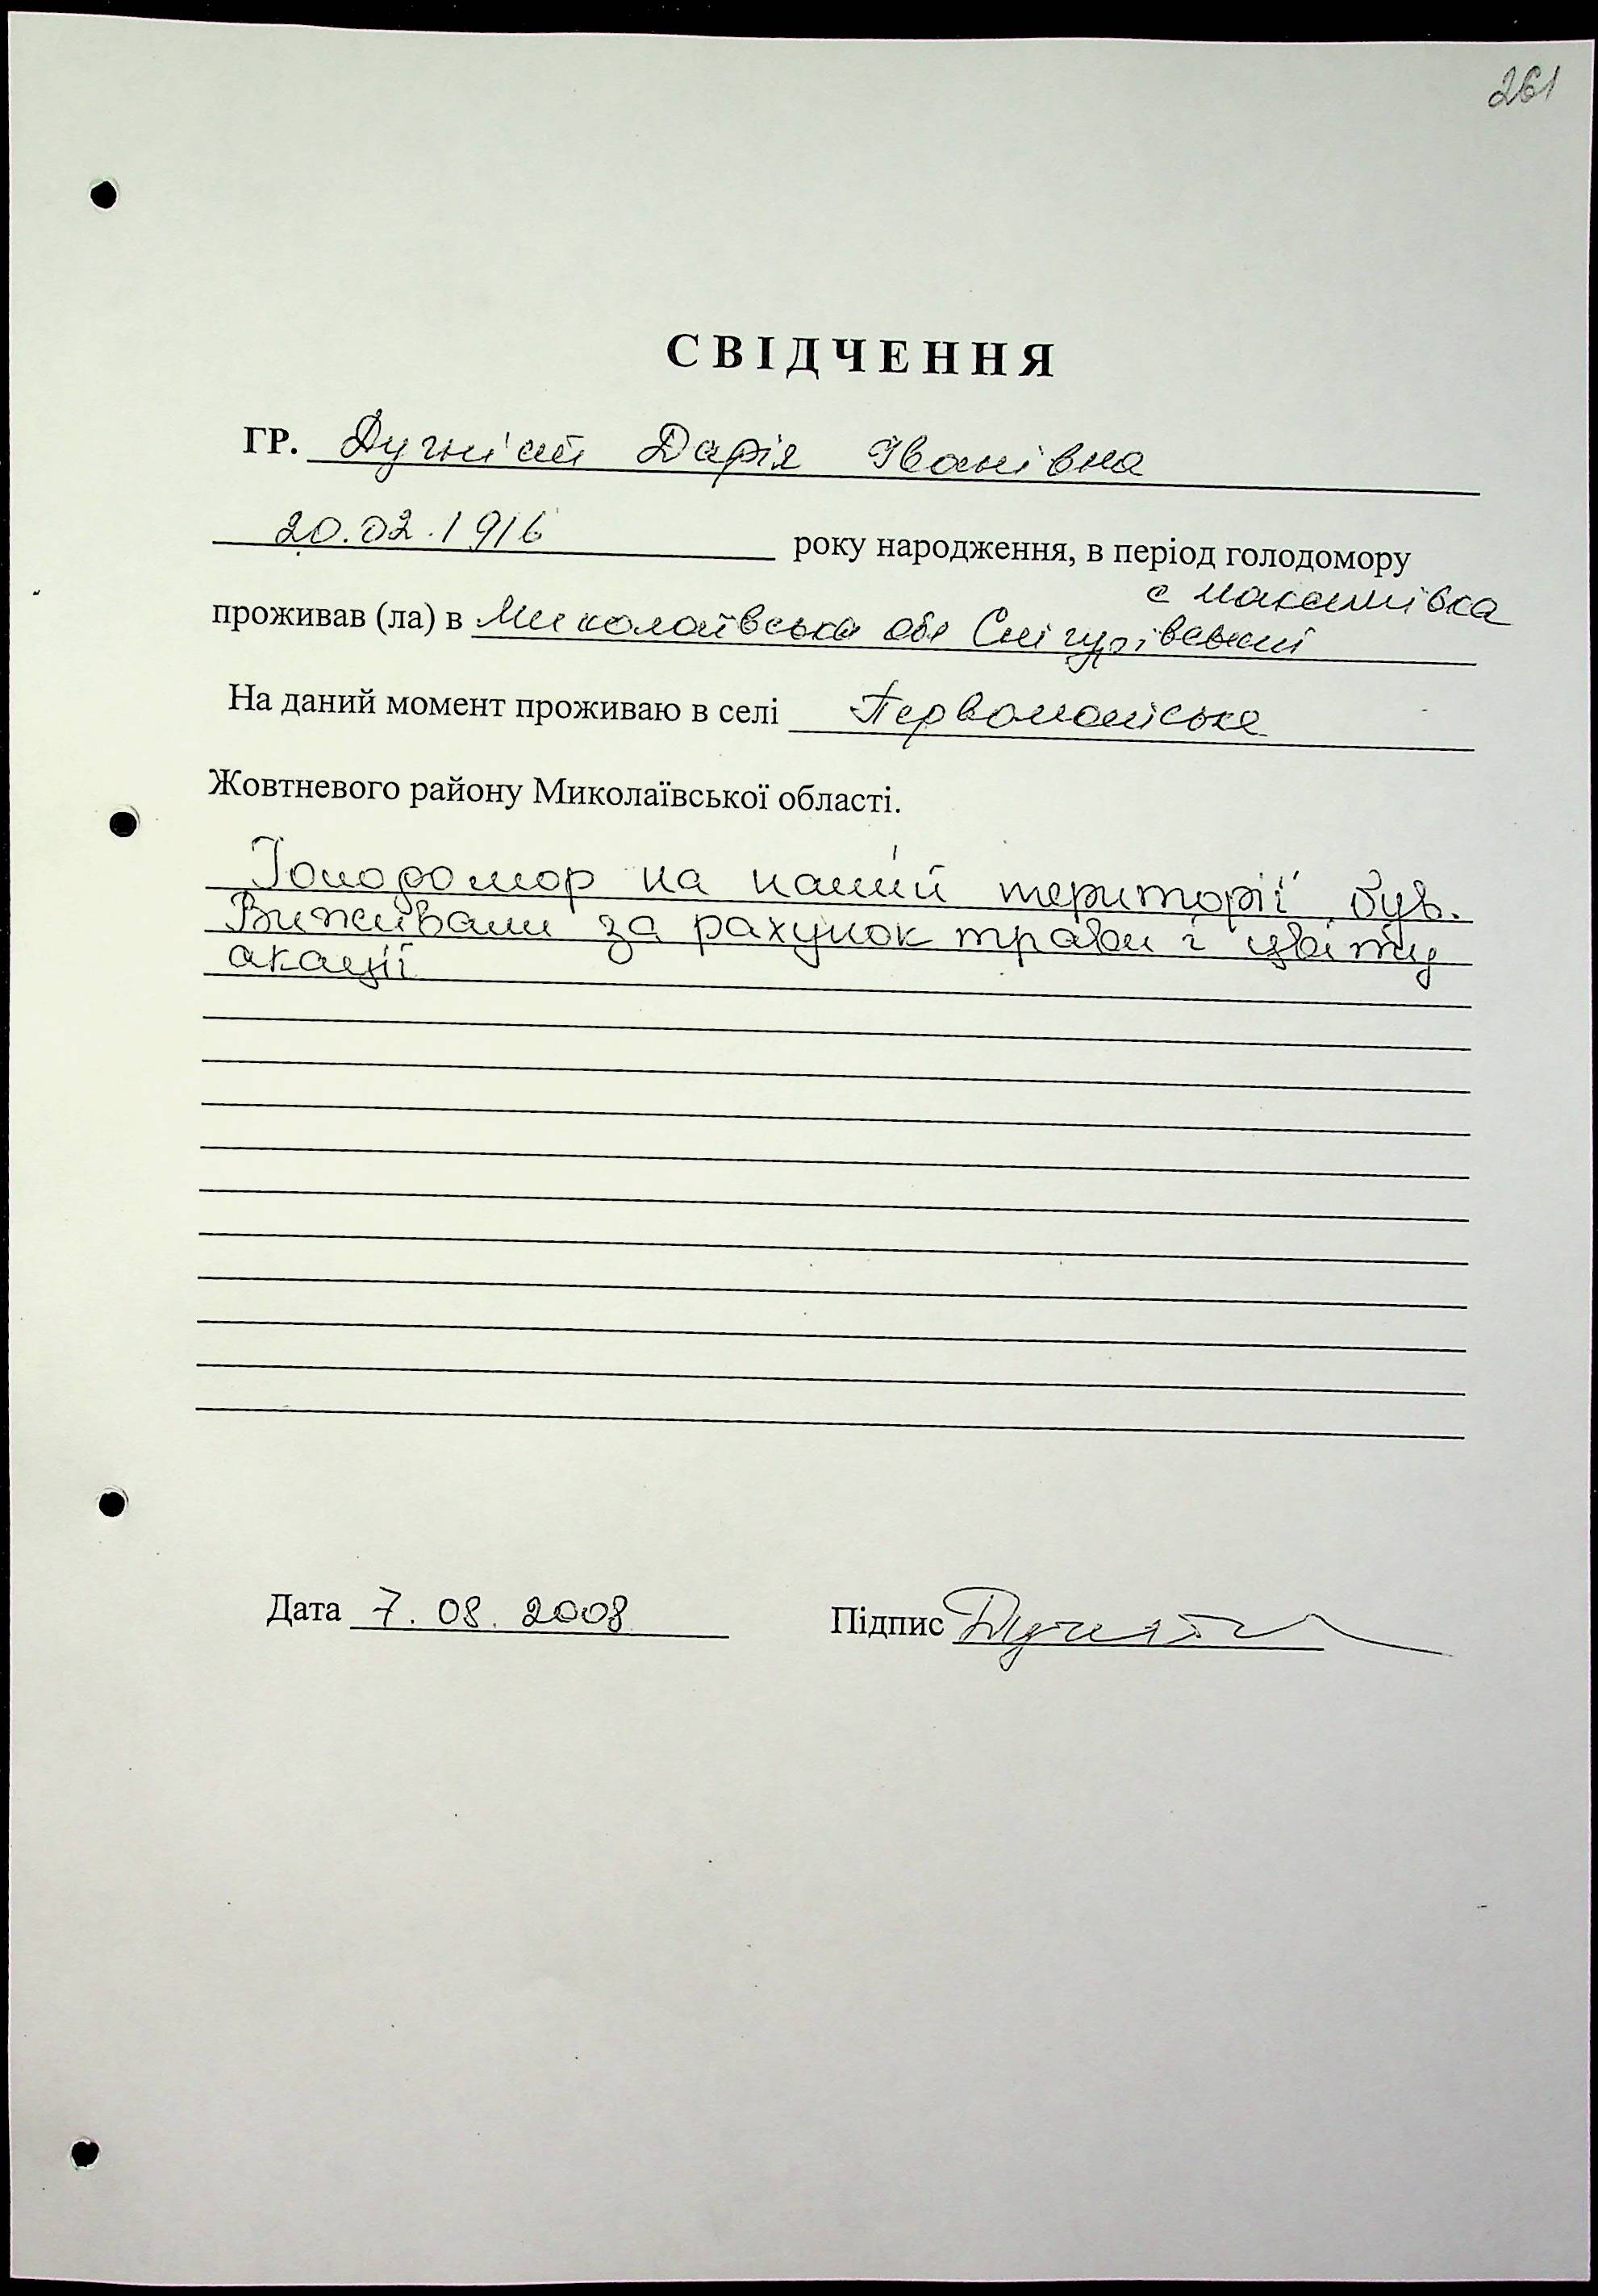 261
СВІДЧЕННЯ
ГР. Дарія Іванівна
20.02.1916 року народження, в період голодомору
с Максимівка
проживав (ла) в Миколаївська обл Снігурівський
На даний момент проживаю в селі Первомайське
Жовтневого району Миколаївської області.
Голодомор на нашій території був.
Виживали за рахунок трави і цвіту
акації
Дата 7.08.2008 Підпис